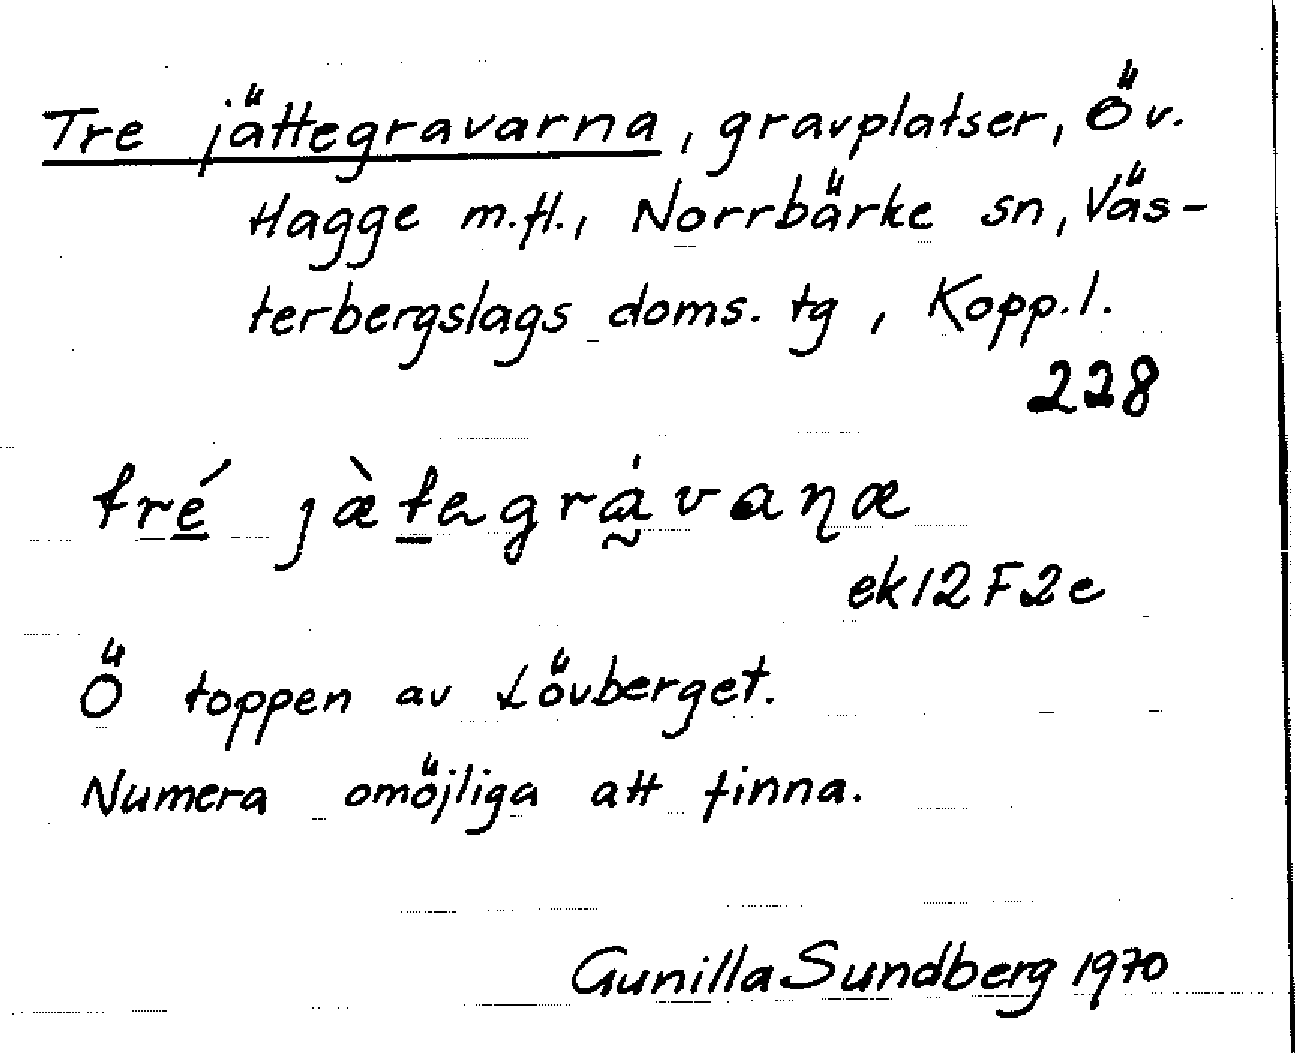 Tre jättegravarna, gravplatser, Öv.
Hagge m.fl., Norrbärke sn, Väs-
terbergslags doms. tg, Kopp.l.
228
tré jæ̀tegrávaɳæ
ek12F2e
Ö toppen av Lövberget.
Numera omöjliga att finna.
Gunilla Sundberg 1970